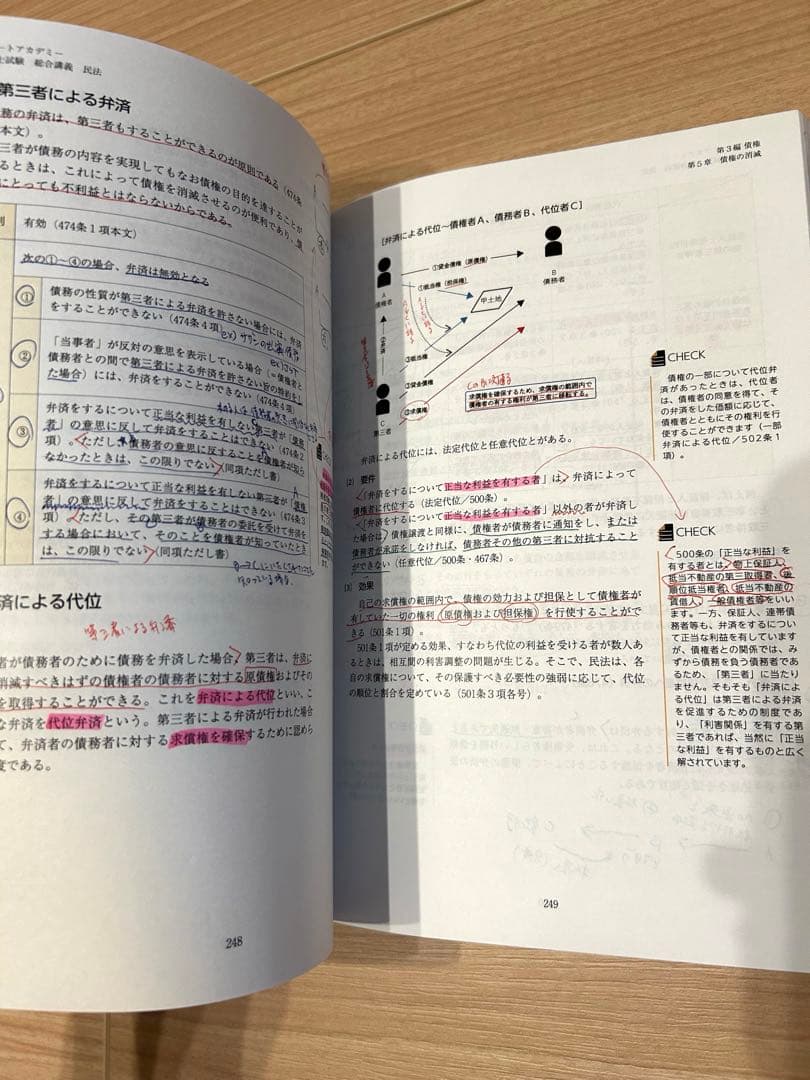 ートアカデミー
士試験 総合講義 民法
第三者による弁済
務の弁済は、第三者もすることができるのが原則である(474条
本文)。
三者が債務の内容を実現してもなお債権の目的を達することが
るときは、これによって債権を消滅させるのが便利であり、債
にとっても不利益とはならないからである。
則
有効(474条1項本文)
次の①~④の場合、弁済は無効となる
①
債務の性質が第三者による弁済を許さない場合には、弁済
をすることができない(474条4項)
②
「当事者」が反対の意思を表示している場合(=債権者と
債務者との間で第三者による弁済を許さない旨の特約をし
た場合)には、弁済をすることができない(474条4項)
③
弁済をするについて正当な利益を有しない第三者が「債務
者」の意思に反して弁済をすることはできない(474条2
項)。ただし、債務者の意思に反することを債権者が知ら
なかったときは、この限りでない(同項ただし書)
④
弁済をするについて正当な利益を有しない第三者が「債権
者」の意思に反して弁済をすることはできない(474条3
項)。ただし、その第三者が債務者の委託を受けて弁済を
する場合において、そのことを債権者が知っていたとき
は、この限りでない(同項ただし書)
済による代位
第三者による弁済
者が債務者のために債務を弁済した場合、第三者は、弁済に
消滅すべきはずの債権者の債務者に対する原債権およびその
を取得することができる。これを弁済による代位といい、こ
な弁済を代位弁済という。第三者による弁済が行われた場合
て、弁済者の債務者に対する求償権を確保するために認めら
度である。
248
第3編 債権
第5章 債権の消滅
[弁済による代位~債権者A、債務者B、代位者C]
①貸金債権(原債権)
①抵当権(担保権)
A
債権者
B
債務者
甲土地
②弁済
③抵当権
③貸金債権
③求償権
C
第三者
求償権を確保するため、求償権の範囲内で
債権者の有する権利が第三者に移転する。
弁済による代位には、法定代位と任意代位とがある。
(2) 要件
「弁済をするについて正当な利益を有する者」は、弁済によって
債権者に代位する(法定代位/500条)。
「弁済をするについて正当な利益を有する者」以外の者が弁済し
た場合は、債権譲渡と同様に、債権者が債務者に通知をし、または
債務者が承諾をしなければ、債務者その他の第三者に対抗すること
ができない(任意代位/500条・467条)。
(3) 効果
自己の求償権の範囲内で、債権の効力および担保として債権者が
有していた一切の権利(原債権および担保権)を行使することがで
きる(501条1項)。
501条1項が定める効果、すなわち代位の利益を受ける者が数人あ
るときは、相互間の利害調整の問題が生じる。そこで、民法は、各
自の求償権について、その保護すべき必要性の強弱に応じて、代位
の順位と割合を定めている(501条3項各号)。
CHECK
債権の一部について代位弁
済があったときは、代位者
は、債権者の同意を得て、そ
の弁済をした価額に応じて、
債権者とともにその権利を行
使することができます(一部
弁済による代位/502条1
項)。
CHECK
500条の「正当な利益」を
有する者とは、物上保証人、
抵当不動産の第三取得者、後
順位抵当権者、抵当不動産の
賃借人、一般債権者等をいい
ます。一方、保証人、連帯債
務者等も、弁済をするについ
て正当な利益を有しています
が、債権者との関係では、み
ずから債務を負う債務者であ
るため、「第三者」に当たり
ません。そもそも「弁済によ
る代位」は第三者による弁済
を促進するための制度であ
り、「利害関係」を有する第
三者であれば、当然に「正当
な利益」を有するものと広く
解されています。
249